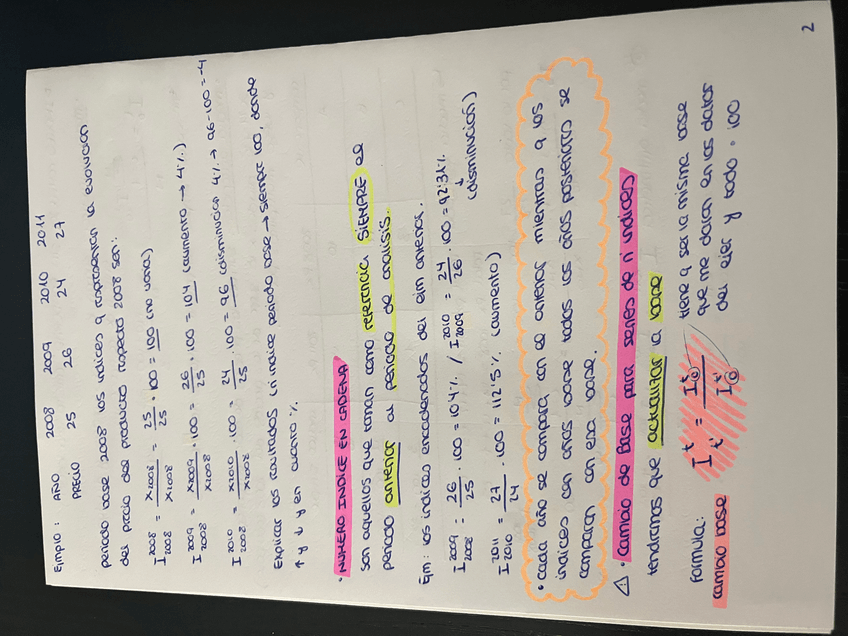 Ejmplo: AÑO 2008 2009 2010 2011
PRECIO 25 26 24 27
periodo base 2008 los indices q representan la evolución
del precio del producto respecto 2008 son:
I 2008/2008 = X2008/X2008 = 25/25 · 100 = 100 (no varia)
I 2009/2008 = X2009/X2008 · 100 = 26/25 · 100 = 104 (aumento → 4%)
I 2010/2008 = X2010/X2008 · 100 = 24/25 · 100 = 96 (disminución 4% → 96-100 = -4
Explicar los resultados (n indice periodo base → siempre 100, donde
↑ y ↓ y en cuanto %.
· NUMERO INDICE EN CADENA
son aquellos que toman como referencia SIEMPRE el
periodo anterior al periodo de analisis.
Ejm: los indices encadenados del ejm anterior.
I 2009/2008 = 26/25 · 100 = 104% / I 2010/2009 = 24/26 · 100 = 92'31%
↓
(disminución)
I 2011/2010 = 27/24 · 100 = 112'5% (aumento)
· cada año se compara con el anterior mientras q los
indices con años base todos los años posteriores se
comparan con esa base.
⚠ · Cambio de Base para series de nº indices
tendremos que actualizar la base
formula: I t/t' = I t/0 / I t'/0
cambio base
tiene q ser la misma base
que me dan en los datos
del ejer y todo · 100
2